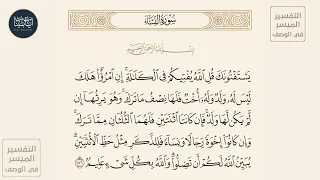 سُورَةُ النِّسَاءِ
بِسْمِ اللَّهِ الرَّحْمَٰنِ الرَّحِيمِ
يَسْتَفْتُونَكَ قُلِ اللَّهُ يُفْتِيكُمْ فِي الْكَلَالَةِ إِنِ امْرُؤٌا هَلَكَ
لَيْسَ لَهُ وَلَدٌ وَلَهُ أُخْتٌ فَلَهَا نِصْفُ مَا تَرَكَ وَهُوَ يَرِثُهَا إِن
لَّمْ يَكُن لَّهَا وَلَدٌ فَإِن كَانَتَا اثْنَتَيْنِ فَلَهُمَا الثُّلُثَانِ مِمَّا تَرَكَ
وَإِن كَانُوا إِخْوَةً رِّجَالًا وَنِسَاءً فَلِلذَّكَرِ مِثْلُ حَظِّ الْأُنثَيَيْنِ
يُبَيِّنُ اللَّهُ لَكُمْ أَن تَضِلُّوا وَاللَّهُ بِكُلِّ شَيْءٍ عَلِيمٌ ١٧٦
التفسير
الميسر
في الوصف
التفسير
الميسر
في الوصف